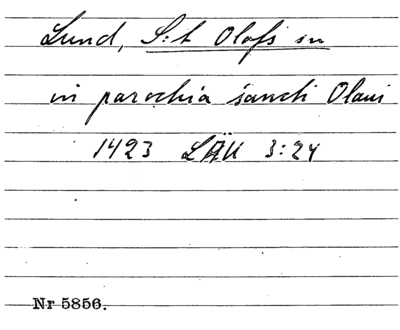 Lund, S:t Olofs sn
in parochia sancti Olaui
1423 LÄU 3:24
Nr 5856.